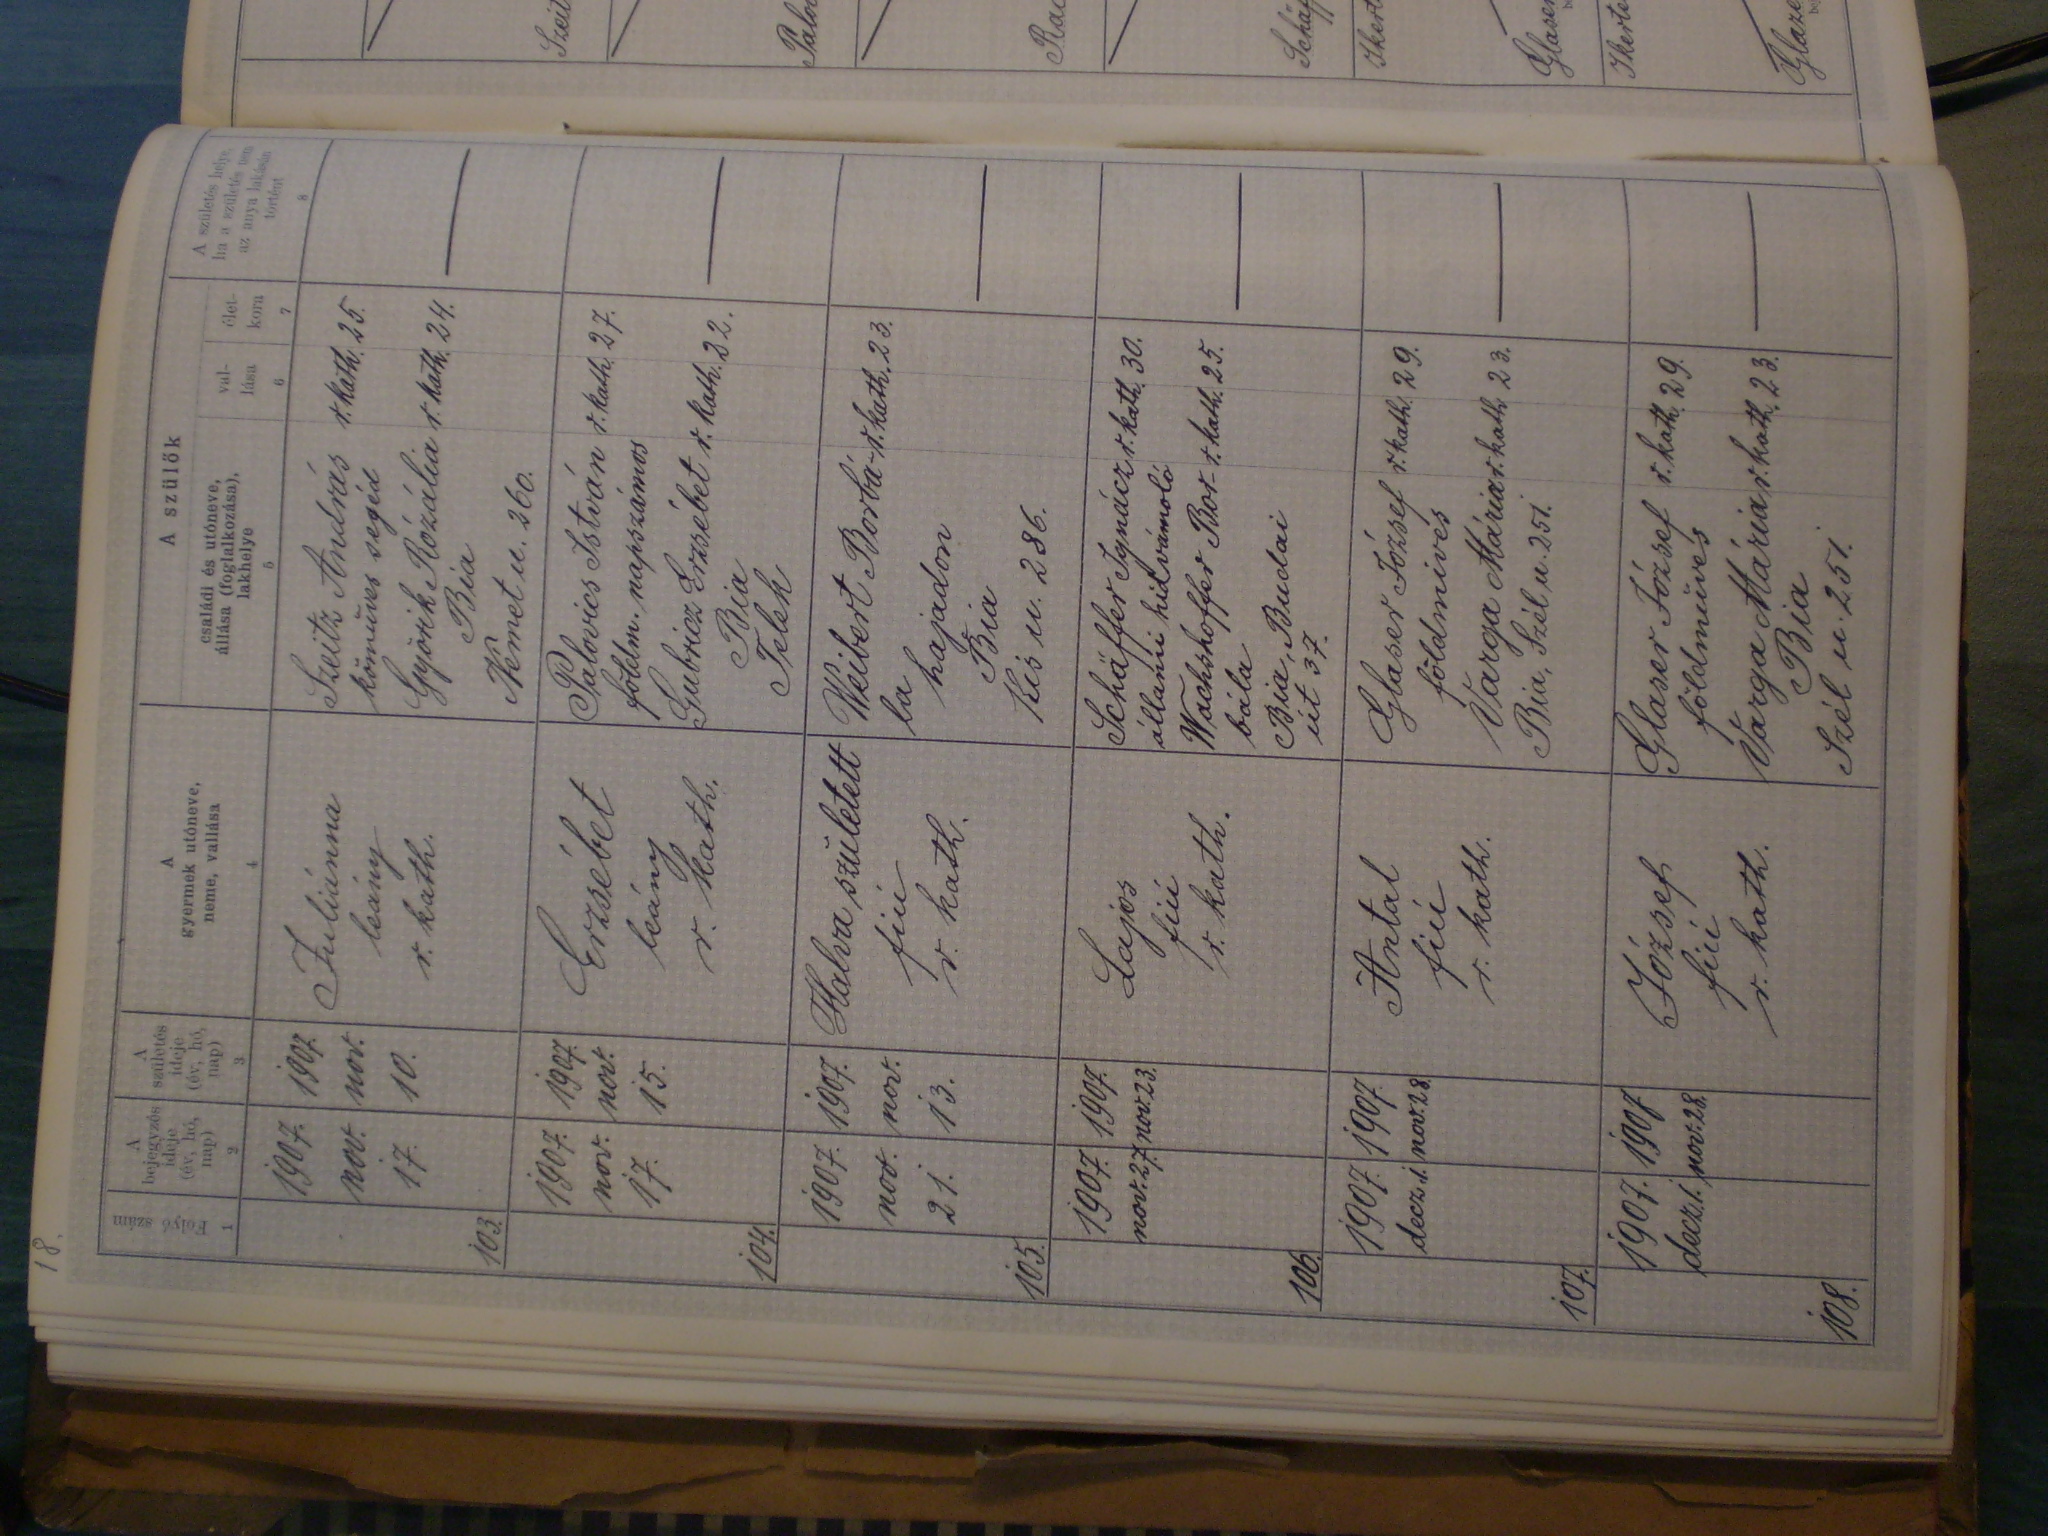 18.
Folyó
szám
1
A
bejegyzés
ideje
(év, hó,
nap)
2
A
születés
ideje
(év, hó,
nap)
3
A
gyermek utóneve,
neme, vallása
4
A szülők
családi és utóneve,
állása (foglalkozása),
lakhelye
5
val-
lása
6
élet-
kora
7
A születés helye,
ha a születés nem
az anya lakásán
történt
8
103.
1907.
nov.
17.
1907.
nov.
10.
Juliánna
leány
r. kath.
Szeitz András r. kath. 25.
kőműves segéd
Györik Rozália r. kath. 24.
Bia
Német u. 260.
104.
1907.
nov.
17.
1907.
nov.
15.
Erzsébet
leány
r. kath.
Palovics István r. kath. 27.
földm. napszámos
Gubricz Erzsébet r. kath. 32.
Bia
Telek
105.
1907.
nov.
21.
1907.
nov.
13.
Halva született
fiú
r. kath.
Weibert Borbá- r. kath. 23.
la hajadon
Bia
Kis u. 286.
106.
1907.
nov. 27.
1907.
nov. 23.
Lajos
fiú
r. kath.
Schäffer Ignácz r. kath. 30.
állami hidvámoló
Wachshoffer Bor- r. kath. 25.
bála
Bia, Budai
út 37.
107.
1907.
decz. 1.
1907.
nov. 28.
Antal
fiú
r. kath.
Glaser József r. kath. 29.
földmives
Varga Mária r. kath. 23.
Bia, Szél u. 251.
108.
1907.
decz. 1.
1907
nov. 28.
József
fiú
r. kath.
Glaser József r. kath. 29.
földműves
Varga Mária r. kath. 23.
Bia
Szél u. 251.